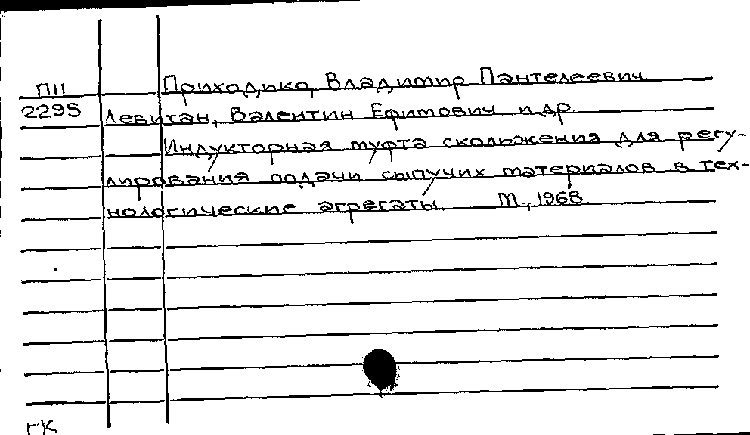 ПП Приходько, Владимир Пантелеевич
2295 Левитан, Валентин Ефимович и др.
Индукторная муфта скольжения для регу-
лирования подачи сыпучих материалов в тех-
нологические агрегаты. М., 1968.
ГК